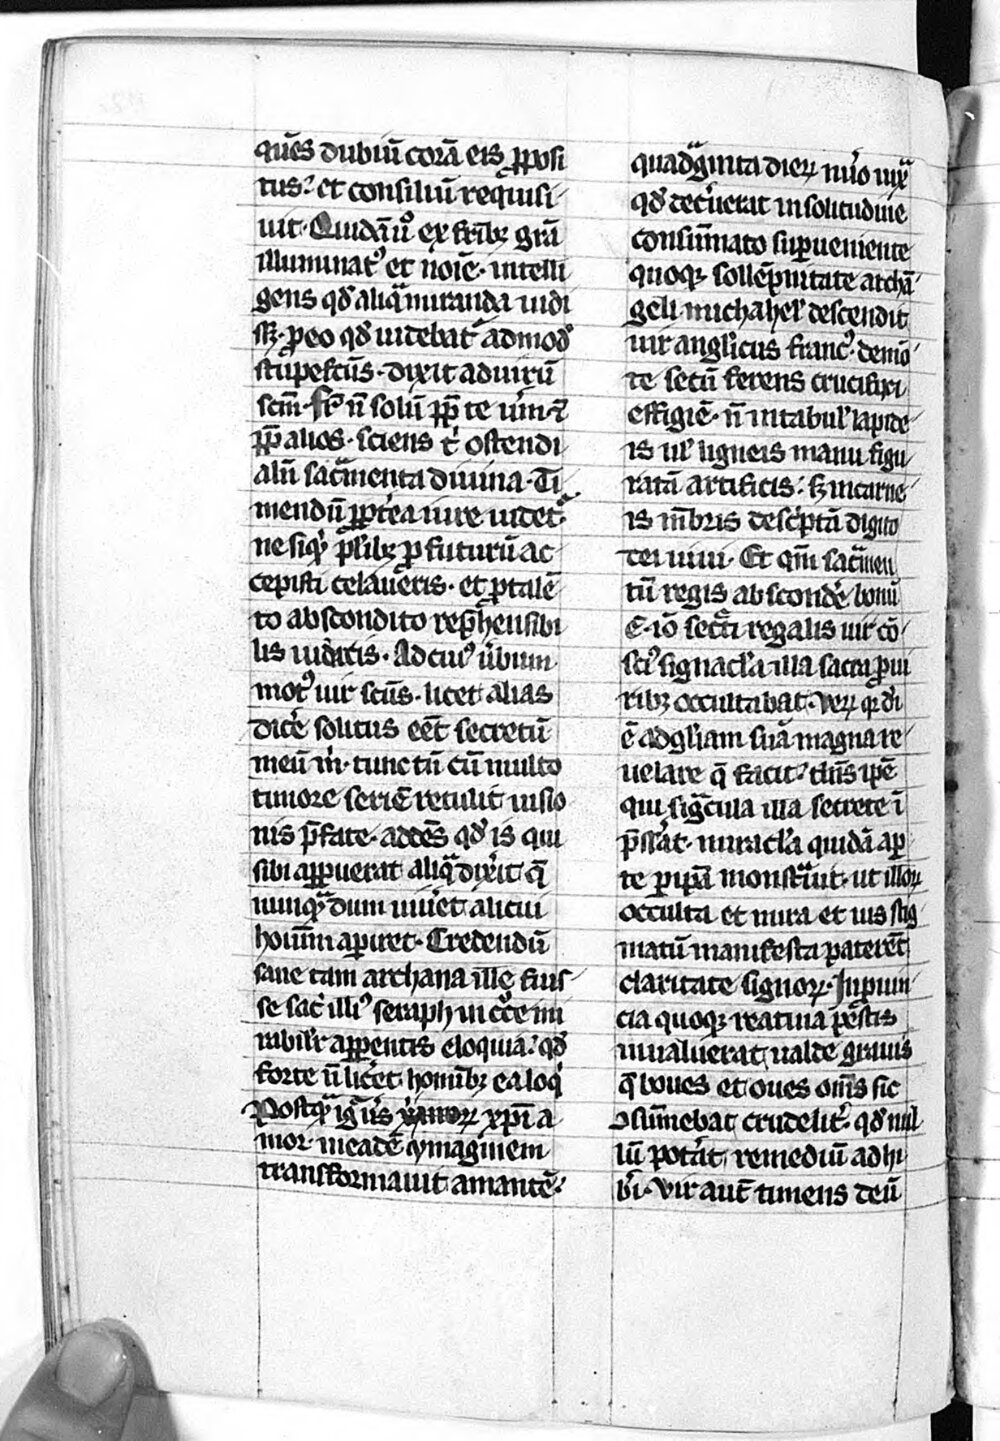 quēs dubiū corā eis ꝓposi
tus· et consiliū requisi
uit· Quidā u͛o ex frībꝫ grā
illuminatꝰ et noīe· intelli
gens qd̛ aliqͣ miranda uidi
sꝫ· ꝓ eo qd̛ uidebat᷑ admodꝰ
stupefcūs· dixit ad uirū
scm̄· Fr̄ n̄ solū ꝓp̄ te ūm ⁊
ꝓp̄ alios· sciens t̛ ostendi
alīn sacͣmenta diuina· Ti
mendū ꝓpt̛ea iure uidet᷑
ne si qͥ p̄libꝫ ꝓfuturū ac
cepisti celaueris· et ꝓ talē
to abscondito rep̄hensibi
lis iudic̛is· Ad cuiꝰ ūbum
motꝰ uir scūs· licet alias
dic̛e solitus eēt secretū
meū m̛· tunc tn̄ cū multo
timore seriē retulit uisio
nis p̄fate· addēs qd̛ is qui
sibi apꝑuerat aliqͣ dix̛it q̄
nunqͣ dum uiưet alicui
hoīnīn aperiret· Credendū
sane tam archana ille fuis
se sac̛ illiꝰ seraph in cͦce mi
rabil̛r apꝑentis eloquia· qd̛
forte n̄ lic̛et homībꝫ ea loqͥ
Postqͣ igͥ ūs xp̄i a
mor· in eadē ymaginem
transformauit amantē·
quadͣginta dierꝝ nūo iuxͣ
qd̛ decưerat in solitudine
consūmato suꝑueniente
quoqꝫ sollēpnitate archā
geli michahel̛ descendit
uir angl̛icus francꝰ· demō
te secū ferens crucifixi
effigiē· n̄ in tabul̛ lapide
is ul̛ ligneis manu figu
ratā artificis· sꝫ in carne
is m̄bris descͥptā digito
dei uiui· Et qm̄ sacͣmen
tū regis abscond̛e bonū
ē· iō secͤti regalis uir cō
sciꝰ signacl̛a illa sacra ꝓ ui
ribꝫ occultabat· Verꝝ qꝛ di
ē ad gl̛iam suā magna re
uelare q̄ facit· dn̄s ip̄e
qui sigͣcula illa secrete ī
p̄ss̛at· miracl̛a quidā aꝑ
te ꝑ ip̄a monstͣuit· ut illoꝝ
occulta et mira et uis stig
matū manifesta pateret᷑
claritate signoꝝ· In ꝓuin
cia quoqꝫ reatina pestis
inualuerat ualde grauis
q̄ boues et oues om̄s sic
ↄsūmebat crudelit̛· qd̛ nul
lū pot̛at remediū adhi
bi· Vir aut̄ timens deū